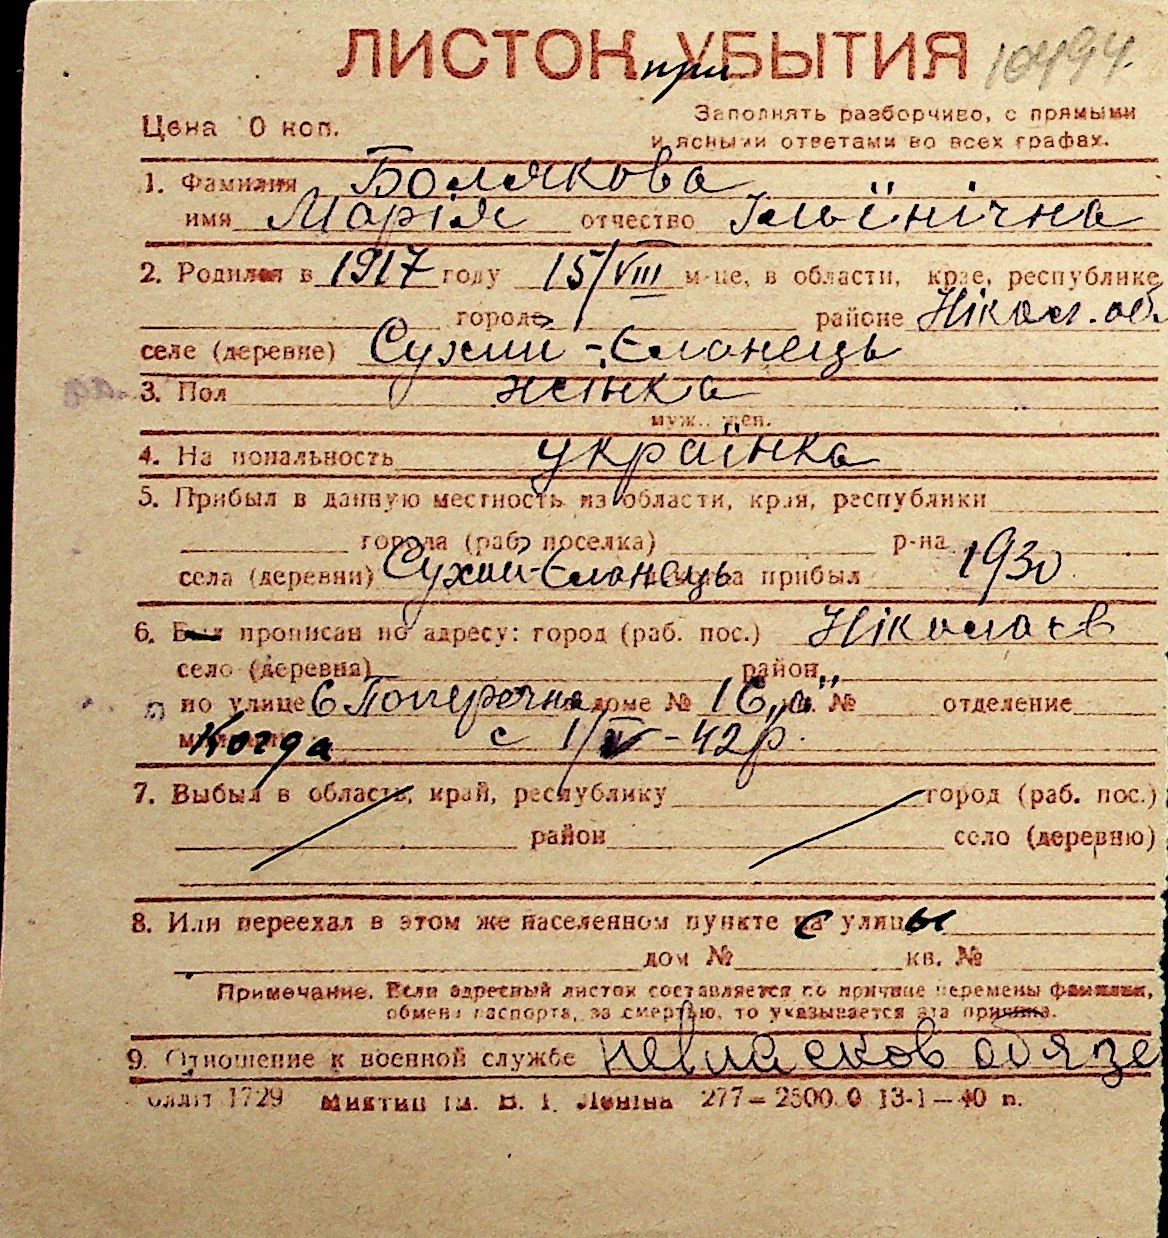 ЛИСТОК при УБЫТИЯ 10494
Цена 10 коп.
Заполнять разборчиво, с прямыми
и ясными ответами во всех графах.
1. Фамилия Болякова
имя Марія отчество Ільїнічна
2. Родился в 1917 году 15/VIII м-це, в области, крае, республике
городе районе Нікол. об.
селе (деревне) Сухий-Єланець
3. Пол жінка
муж., жен.
4. Национальность українка
5. Прибыл в данную местность из области, края, республики
города (раб. поселка) р-на
села (деревни) Сухий-Єланець прибыл 1930
6. Был прописан по адресу: город (раб. пос.) Ніколаєв
село (деревня) район
по улице 6 Поперечна доме № 16 „а" № отделение
Когда с 1/ -42р.
7. Выбыл в область, край, республику город (раб. пос.)
район село (деревню)
8. Или переехал в этом же населенном пункте с улицы
дом № кв. №
Примечание. Если адресный листок составляется по причине перемены фамилии,
обмена паспорта, за смертью, то указывается эта причина.
9. Отношение к военной службе невійсковобязе
1729 ім. В. І. Леніна 277—2500.0 13-1—40 п.